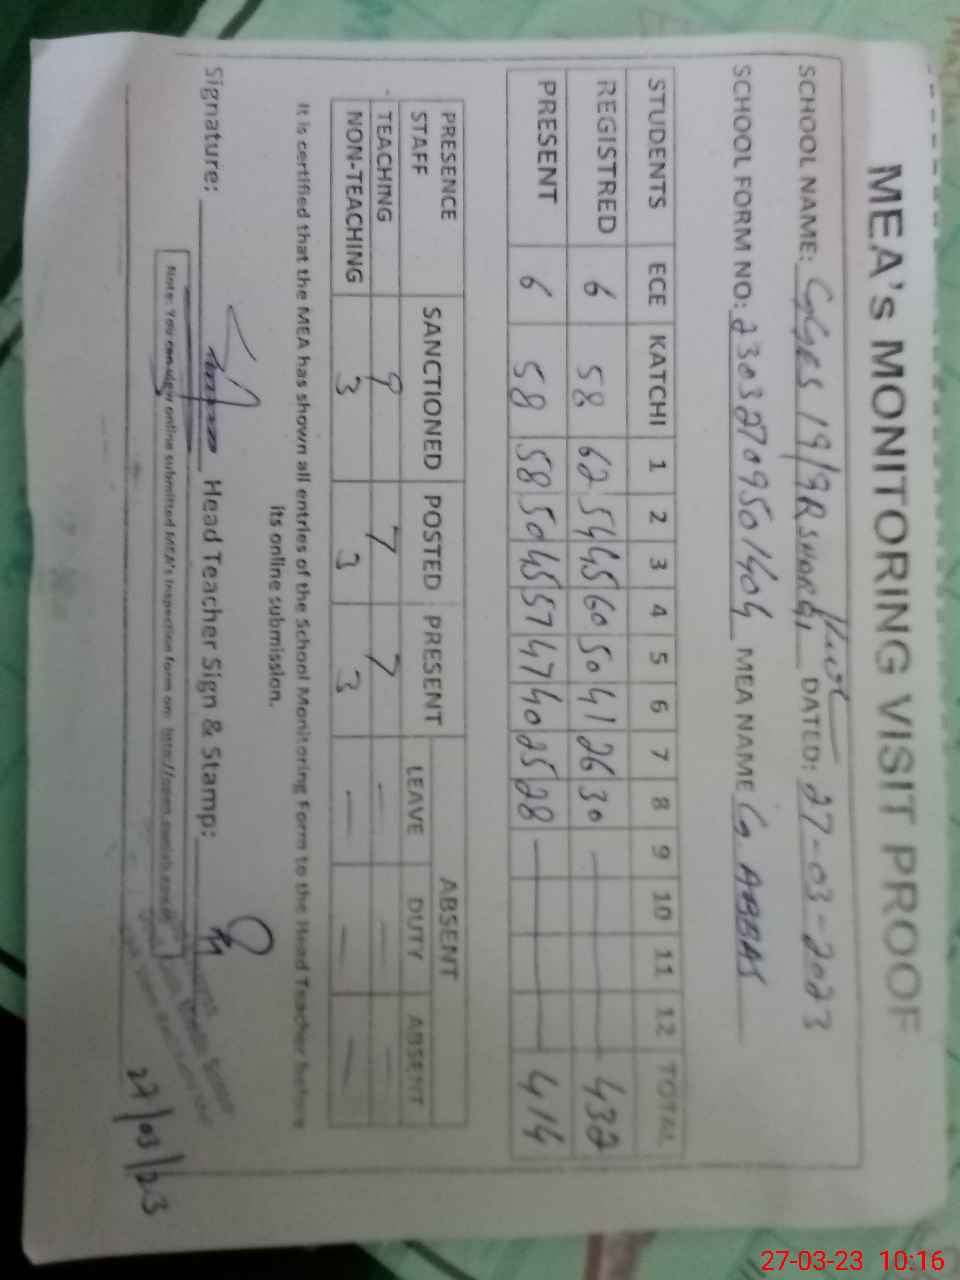 MEA's MONITORING VISIT PROOF
SCHOOL NAME: 19/9R DATED: 27-03-2023
SCHOOL FORM NO: 23032709501404 MEA NAME G. ABBAS
STUDENTS ECE KATCHI 1 2 3 4 5 6 7 8 9 10 11 12 TOTAL
REGISTRED 6 58 62 54 45 60 50 41 26 30 — 432
PRESENT 6 58 58 50 45 57 47 40 25 28 — 414
PRESENCE STAFF SANCTIONED POSTED PRESENT ABSENT
LEAVE DUTY ABSENT
TEACHING 9 7 7 — — —
NON-TEACHING 3 3 3 — — —
It is certified that the MEA has shown all entries of the School Monitoring Form to the Head Teacher before
its online submission.
Signature: Head Teacher Sign & Stamp:
Note: You can view online submitted MEA's inspection form on:
27/03/23
27-03-23 10:16